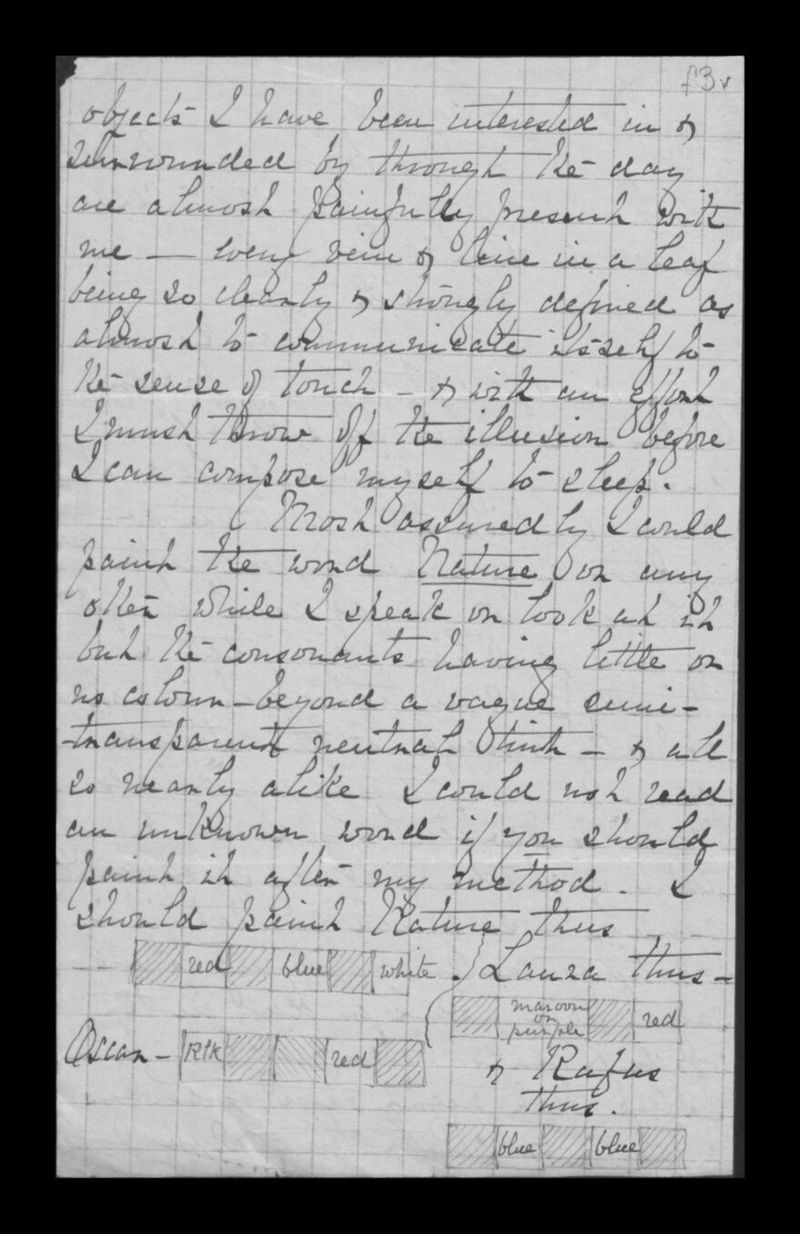 f3v
objects I have been interested in &
surrounded by through the day
are almost painfully present with
me — every vein & line in a leaf
being so clearly & strongly defined as
almost to communicate itself to
the sense of touch - & with an effort
I must throw off the illusion before
I can compose myself to sleep.
Most assuredly I could
paint the word Nature or any
other while I speak or look at it
but the consonants having little or
no colour - beyond a vague semi-
transparent neutral tint - & all
so nearly alike I could not read
an unknown word if you should
paint it after my method. I
should paint Nature thus
red blue white . Laura thus -
maroon or purple red
Oscar - Blk red
& Rufus
thus.
blue blue